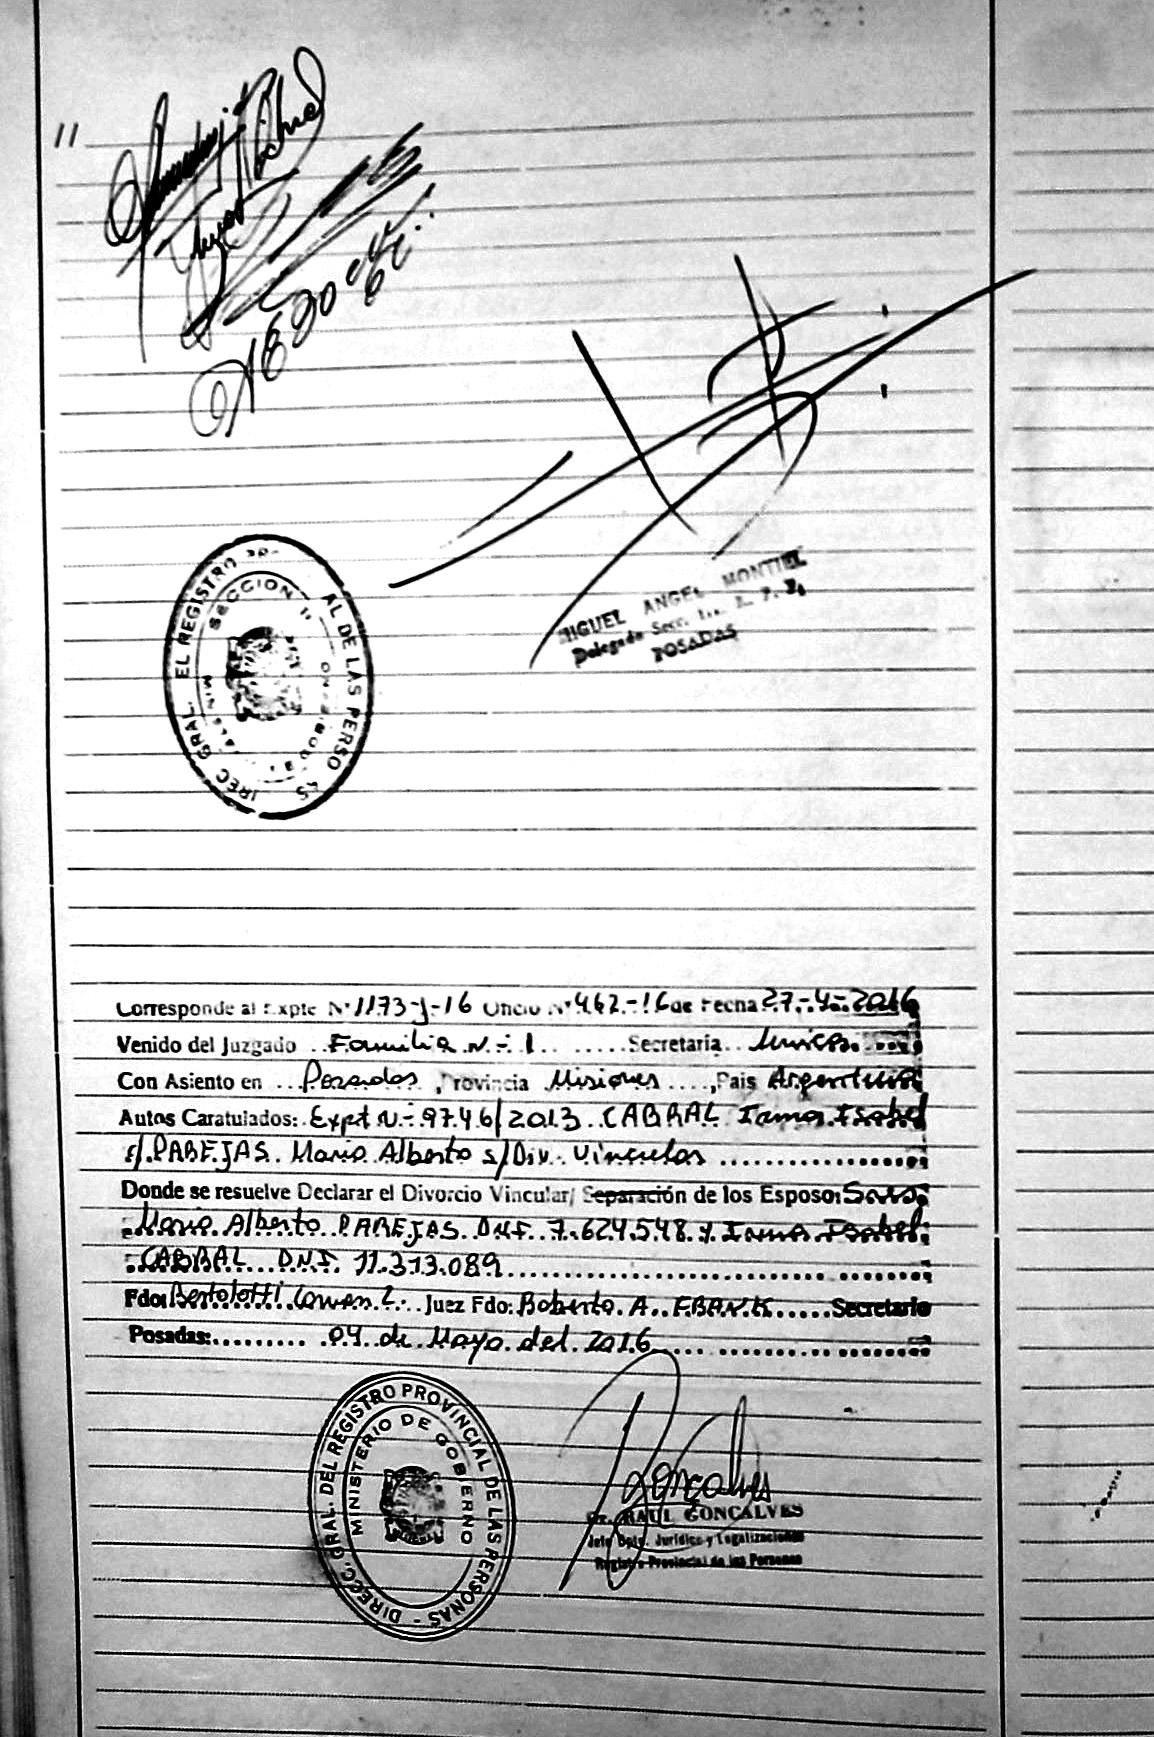 11
SECCION 11
MIGUEL ANGEL MONTIEL
Delegado Secc.
POSADAS
Corresponde al Expte Nº 1173-J-16 Oficio Nº 462-16 de Fecha 27-4-2016
Venido del Juzgado Familia N-1 Secretaria Unica.
Con Asiento en Posadas, Provincia Misiones, Pais Argentina
Autos Caratulados: Expt N- 9746/2013 CABRAL Isabel
c/ PAREJAS Mario Alberto s/Div. Vincular
Donde se resuelve Declarar el Divorcio Vincular/ Separación de los Esposos: Sres.
Mario Alberto PAREJAS DNI 7.624.548 y Isabel
CABRAL D.N.I. 11.313.089
Fdo: Bertolotti Carmen L. Juez Fdo: Roberto A. FRANK Secretario
Posadas: 04 de Mayo del 2016
DIRECC. GRAL. DEL REGISTRO PROVINCIAL DE LAS PERSONAS -
MINISTERIO DE GOBIERNO
R Gonçalves
Dr. RAUL GONCALVES
Jefe Dpto. Jurídico y Legalizaciones
Registro Provincial de las Personas